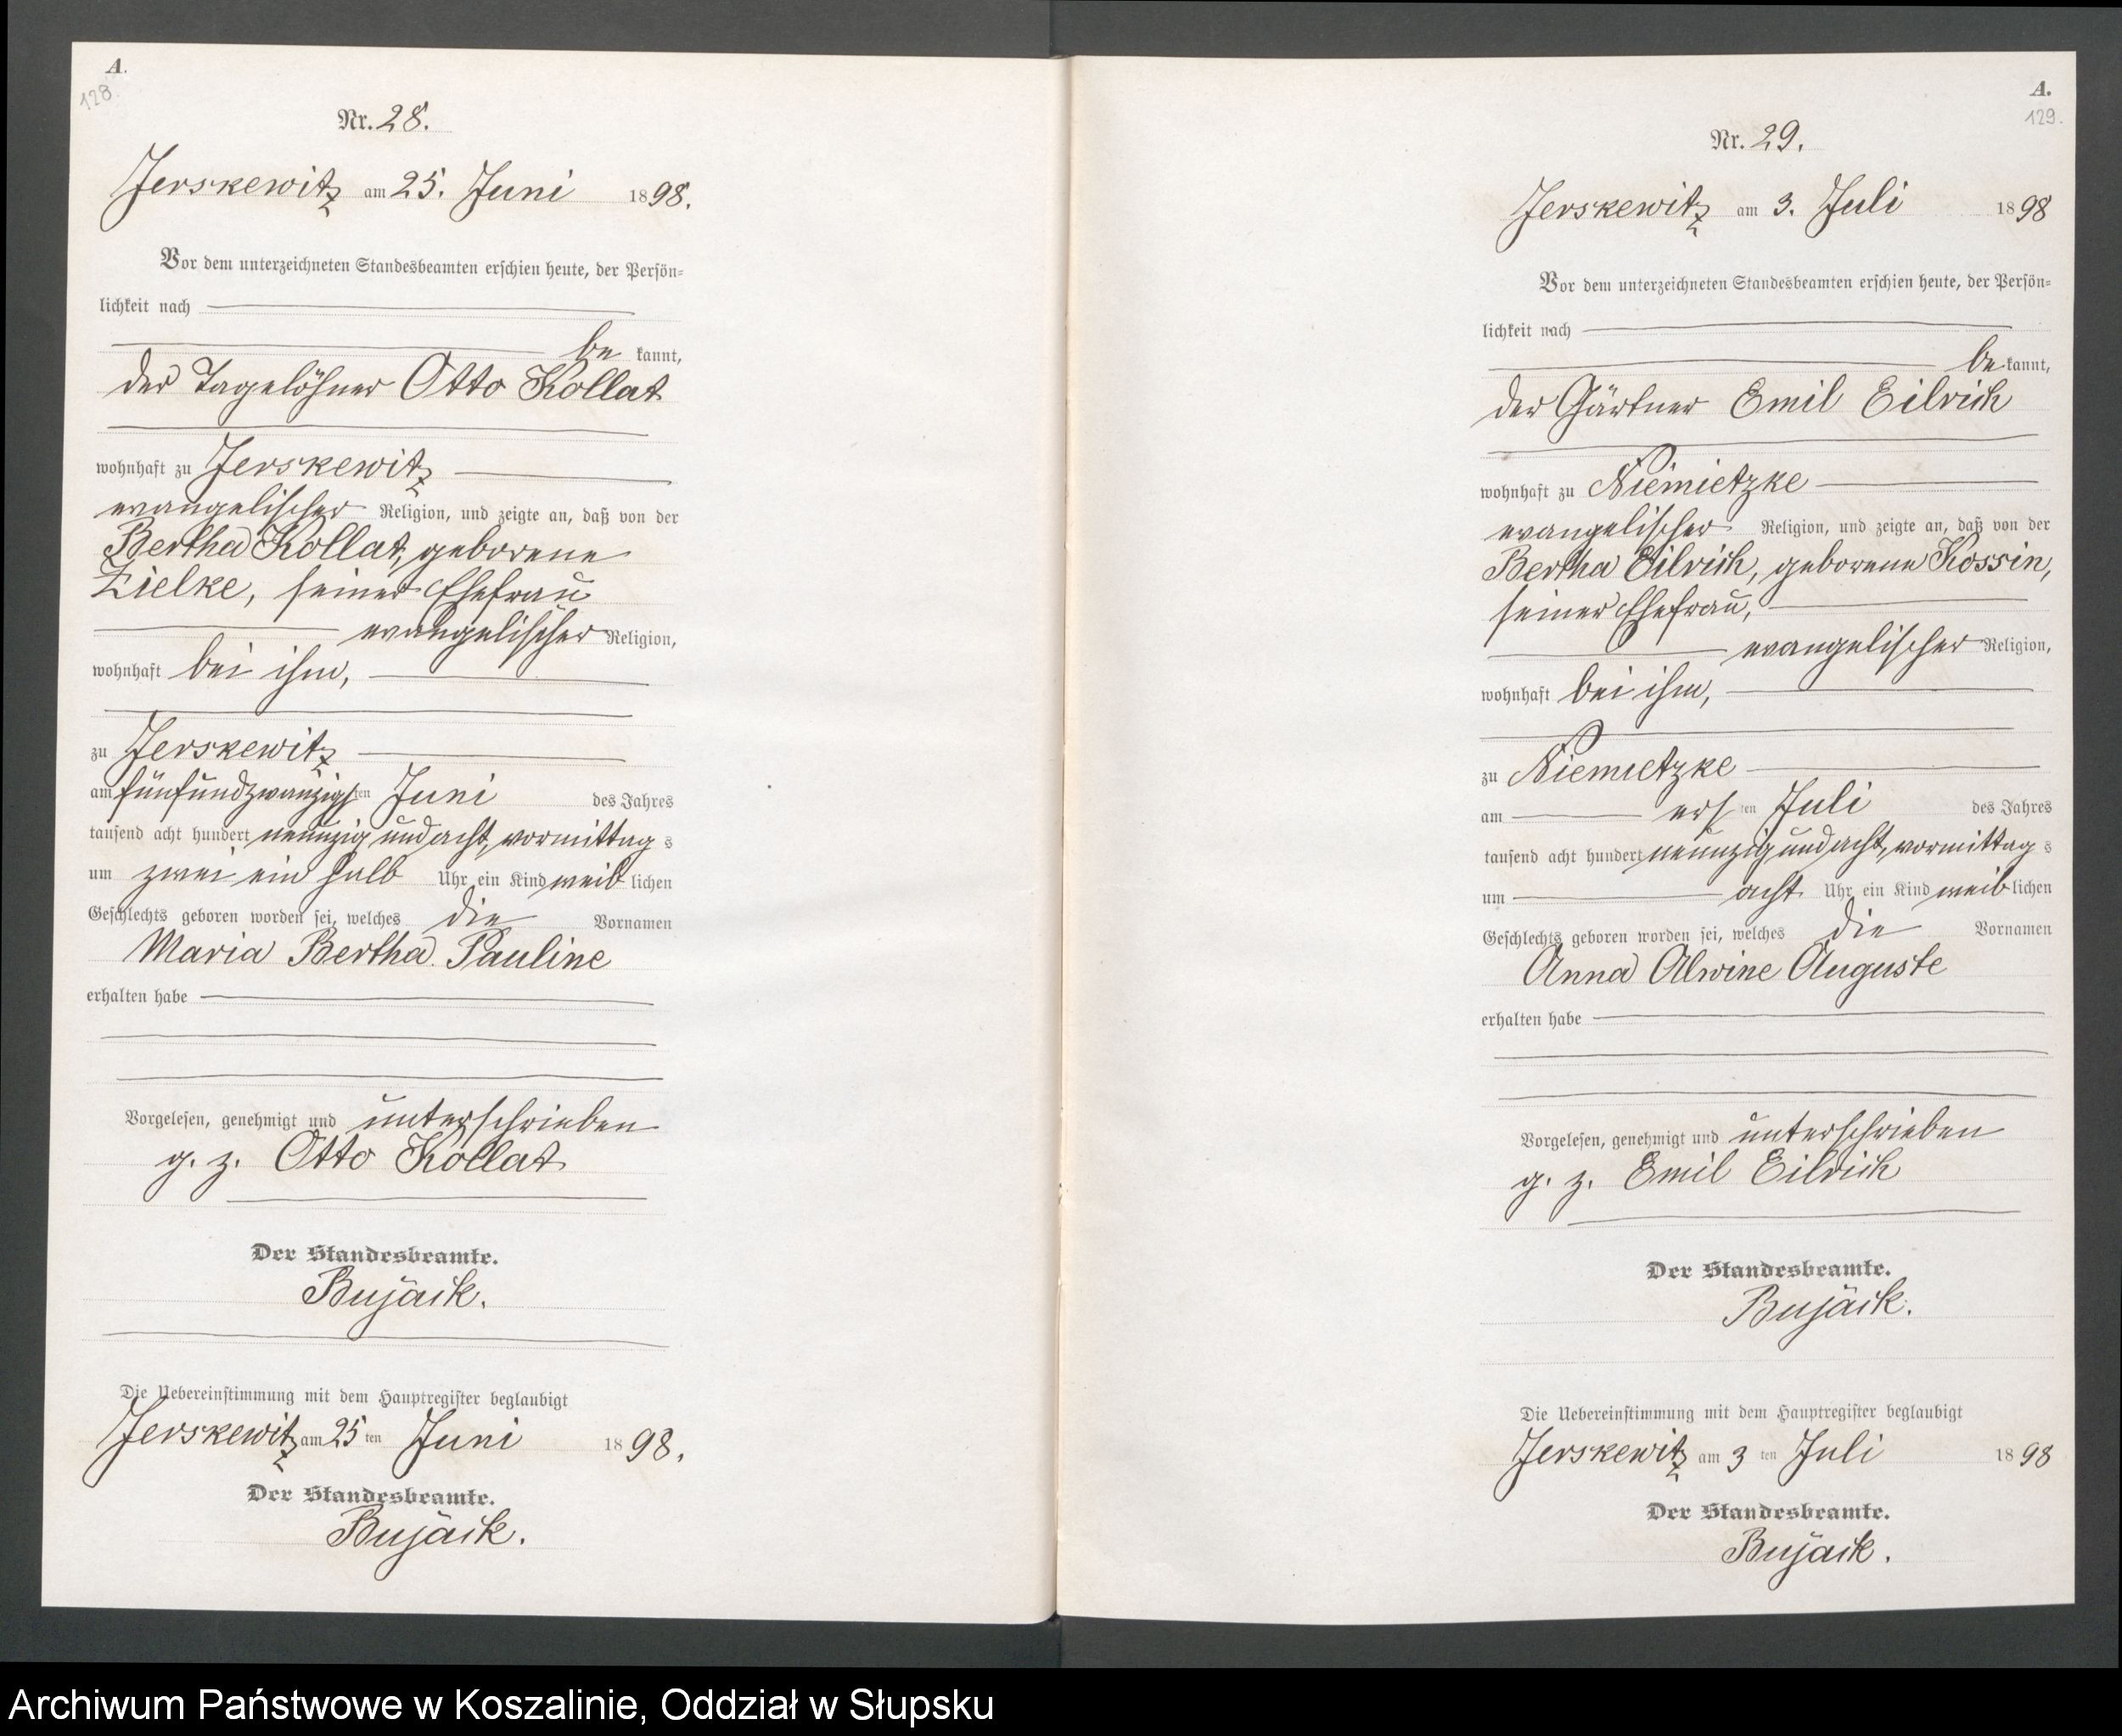 A.
128.
Nr. 28.
Jerskewitz am 25. Juni 1898.
Vor dem unterzeichneten Standesbeamten erschien heute, der Persön-
lichkeit nach
be kannt,
der Tagelöhner Otto Kollat
wohnhaft zu Jerskewitz
evangelischer Religion, und zeigte an, daß von der
Bertha Kollat, geborene
Zielke, seiner Ehefrau
evangelischer Religion,
wohnhaft bei ihm,
zu Jerskewitz
am fünfundzwanzigsten Juni des Jahres
tausend acht hundert neunzig und acht, vormittags
um zwei ein halb Uhr ein Kind weiblichen
Geschlechts geboren worden sei, welches die Vornamen
Maria Bertha Pauline
erhalten habe
Vorgelesen, genehmigt und unterschrieben
g. z. Otto Kollat
Der Standesbeamte.
Bujack.
Die Uebereinstimmung mit dem Hauptregister beglaubigt
Jerskewitz am 25 ten Juni 1898.
Der Standesbeamte.
Bujack.
A.
129.
Nr. 29.
Jerskewitz am 3. Juli 1898
Vor dem unterzeichneten Standesbeamten erschien heute, der Persön-
lichkeit nach
be kannt,
der Gärtner Emil Eilrich
wohnhaft zu Niemietzke
evangelischer Religion, und zeigte an, daß von der
Bertha Eilrich, geborene Kossin,
seiner Ehefrau,
evangelischer Religion,
wohnhaft bei ihm,
zu Niemietzke
am ersten Juli des Jahres
tausend acht hundert neunzig und acht, vormittags
um acht Uhr ein Kind weiblichen
Geschlechts geboren worden sei, welches die Vornamen
Anna Alwine Auguste
erhalten habe
Vorgelesen, genehmigt und unterschrieben
g. z. Emil Eilrich
Der Standesbeamte.
Bujack.
Die Uebereinstimmung mit dem Hauptregister beglaubigt
Jerskewitz am 3 ten Juli 1898
Der Standesbeamte.
Bujack.
Archiwum Państwowe w Koszalinie, Oddział w Słupsku